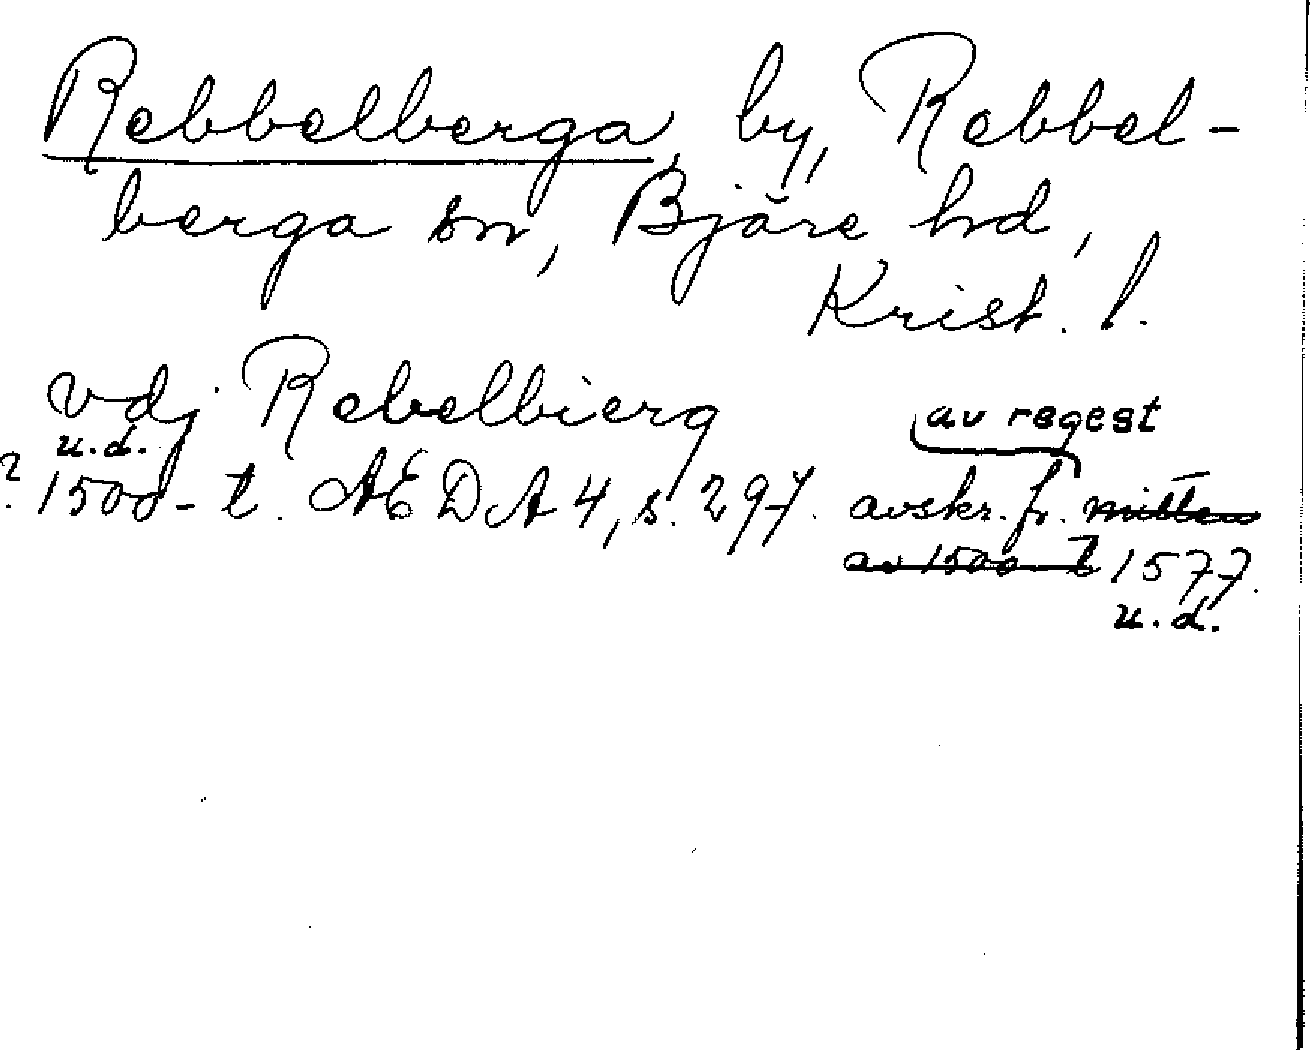 Rebbelberga, by, Rebbel-
berga sn, Bjäre hd,
Krist. l.
vdj Rebelbierg
av regest
u.d.
? 1500-t. AEDA 4, s. 297. avskr. fr. mitten
av 1500-t 1577.
u.d.